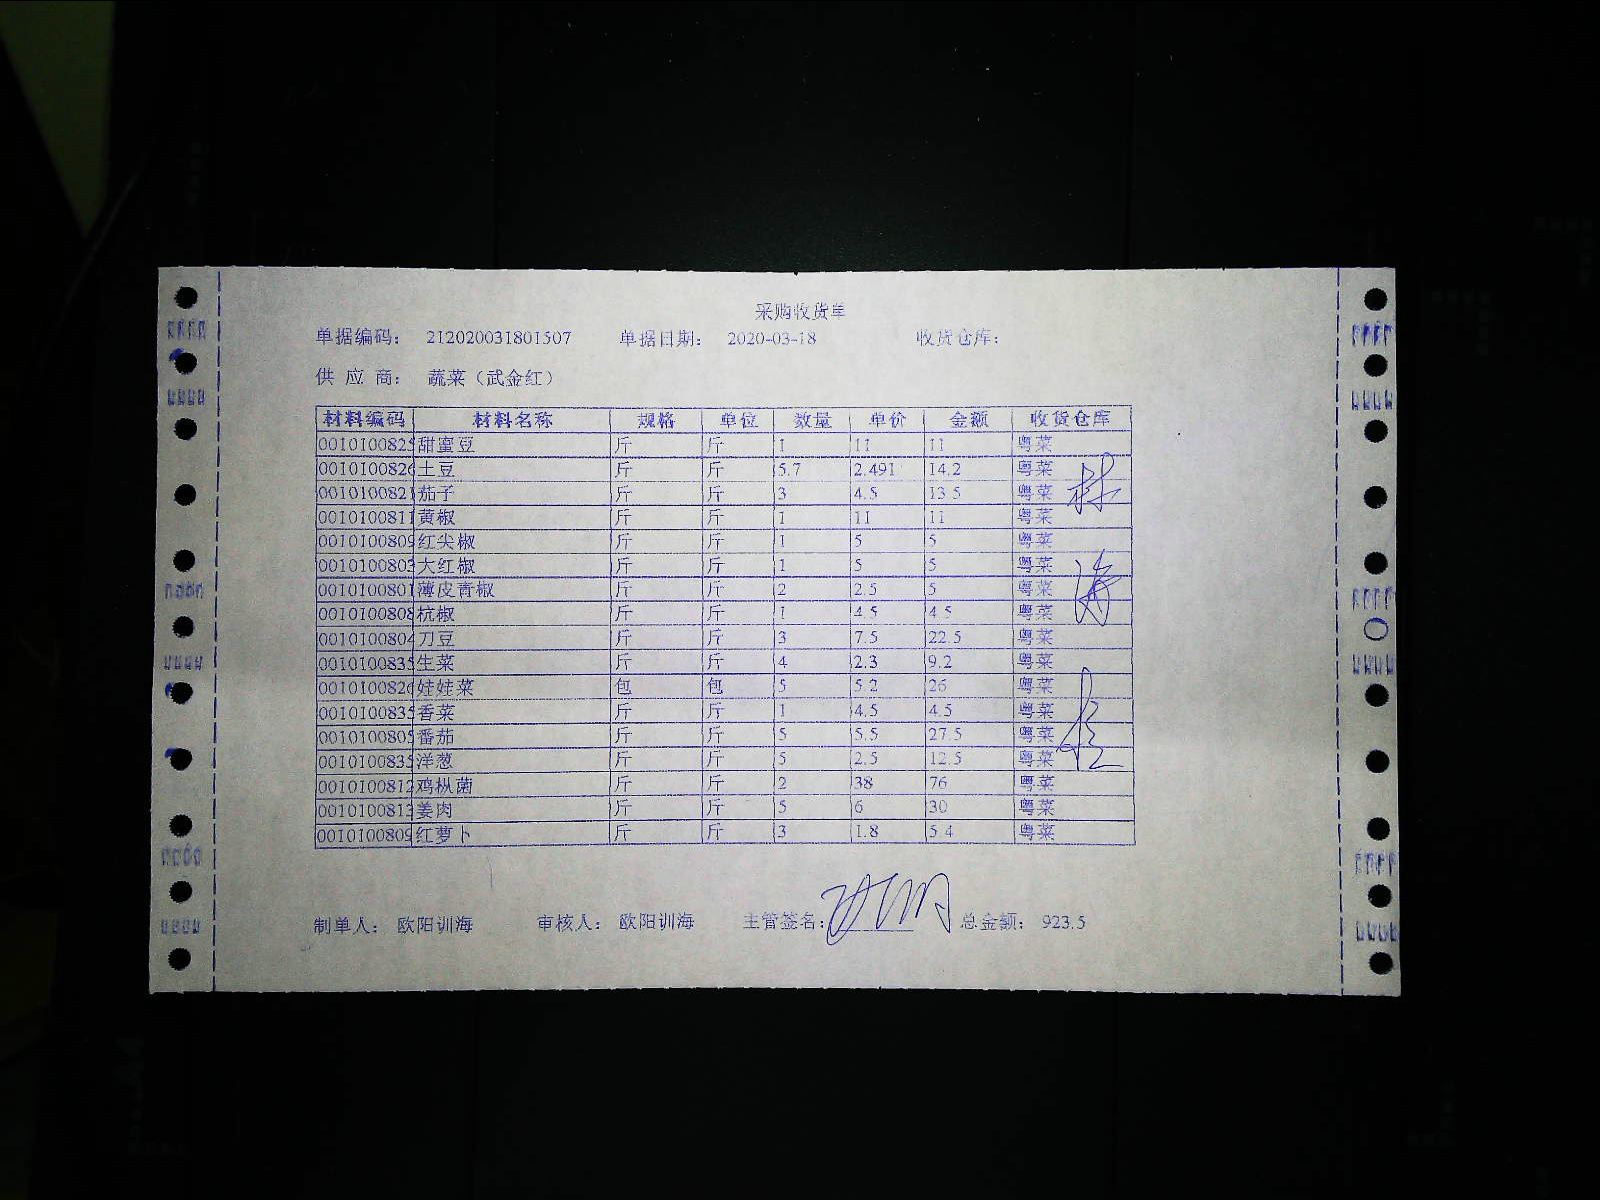 采购收货单
单据编码： 212020031801507 单据日期： 2020-03-18 收货仓库：
供 应 商： 蔬菜（武金红）
材料编码 材料名称 规格 单位 数量 单价 金额 收货仓库
0010100825 甜蜜豆 斤 斤 1 11 11 粤菜
0010100826 土豆 斤 斤 5.7 2.491 14.2 粤菜
0010100821 茄子 斤 斤 3 4.5 13.5 粤菜
0010100811 黄椒 斤 斤 1 11 11 粤菜
0010100809 红尖椒 斤 斤 1 5 5 粤菜
0010100803 大红椒 斤 斤 1 5 5 粤菜
0010100801 薄皮青椒 斤 斤 2 2.5 5 粤菜
0010100808 杭椒 斤 斤 1 4.5 4.5 粤菜
0010100804 刀豆 斤 斤 3 7.5 22.5 粤菜
0010100835 生菜 斤 斤 4 2.3 9.2 粤菜
0010100826 娃娃菜 包 包 5 5.2 26 粤菜
0010100835 香菜 斤 斤 1 4.5 4.5 粤菜
0010100805 番茄 斤 斤 5 5.5 27.5 粤菜
0010100835 洋葱 斤 斤 5 2.5 12.5 粤菜
0010100812 鸡枞菌 斤 斤 2 38 76 粤菜
0010100813 姜肉 斤 斤 5 6 30 粤菜
0010100809 红萝卜 斤 斤 3 1.8 5.4 粤菜
制单人： 欧阳训海 审核人： 欧阳训海 主管签名： 总金额： 923.5